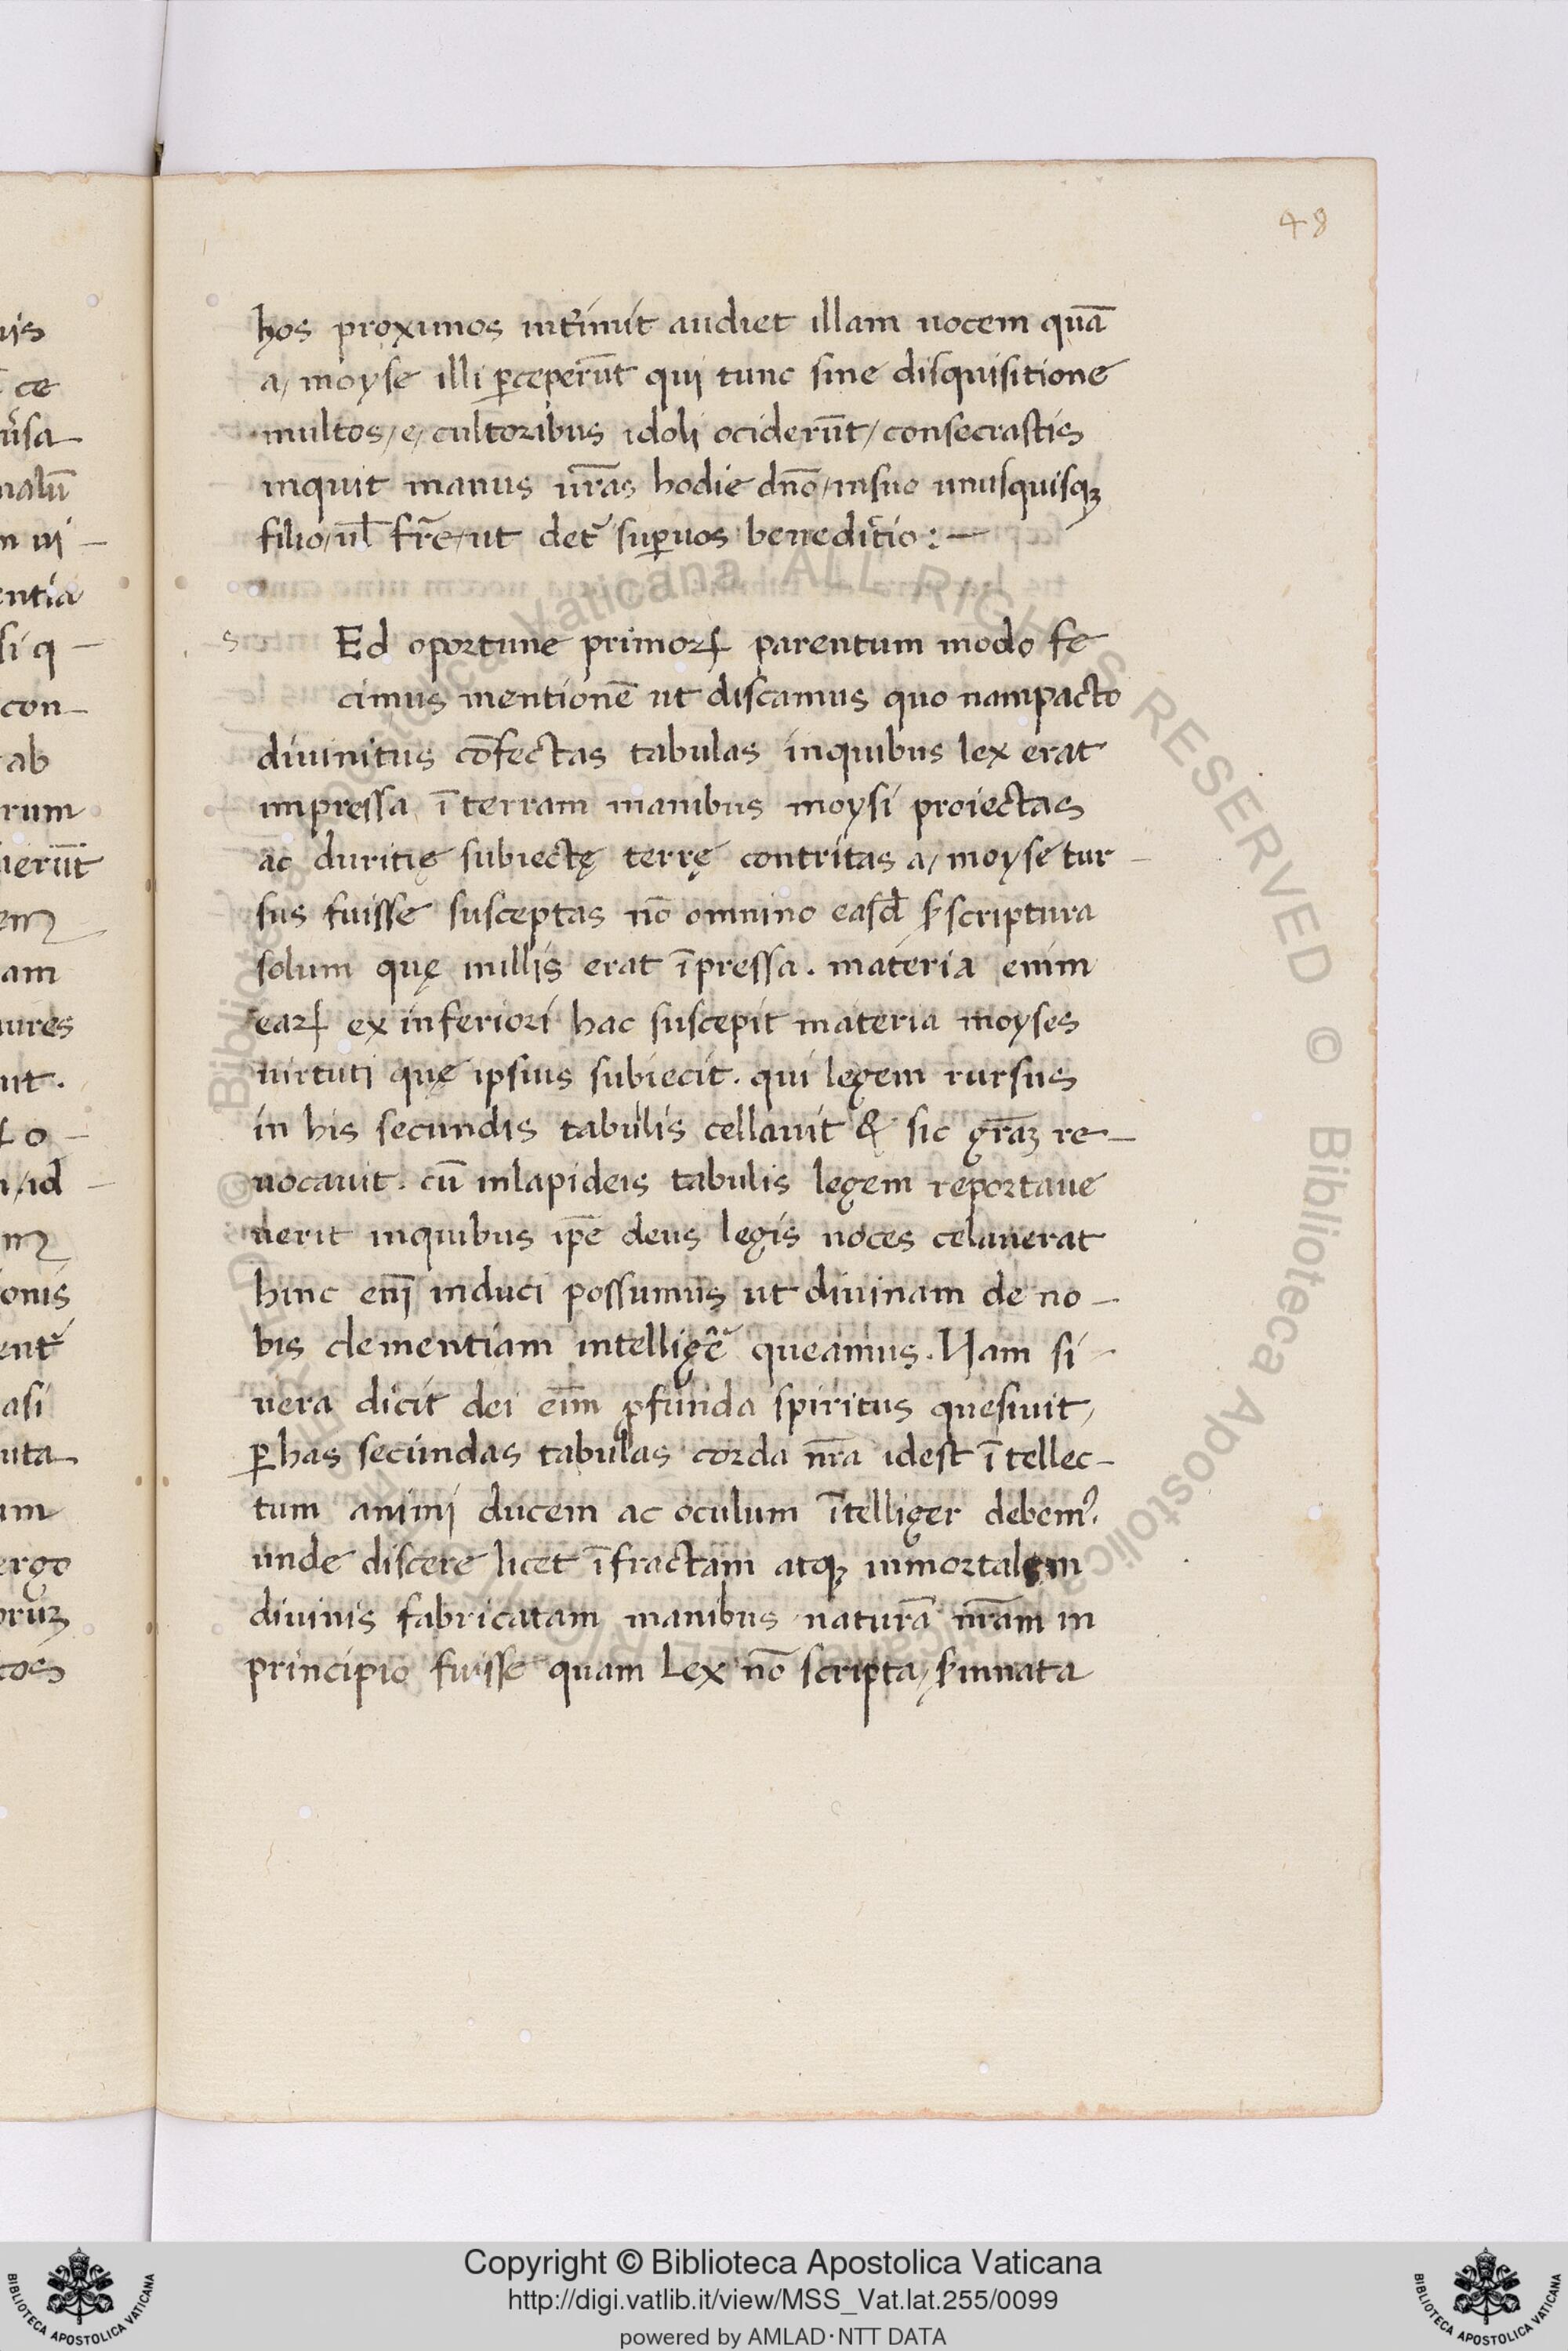 48
hos proximos int̃imit audiet illam uocem quā
a, moyse illi ꝑceperūt qui tunc sine disquisitione
multos, e, cultoribus idoli ociderūt, consecrastis
inquit manus ur̄as hodie dn̄o, insuo unusquisqꝫ
filio, ul̄ fr̄e, ut det̃ suꝑuos beneditio: —
s Ed oportune primorꝝ parentum modo fe
cimus mentionē ut discamus quo nampacto
diuinitus cōfectas tabulas inquibus lex erat
impressa ī terram manibus moysi proiectas
ac duritię subiectę terrę contritas a, moyse rur –
sus fuisse susceptas nō omnino easd̄ sꝫ scriptura
solum quę inillis erat īpressa. materia enim
earꝝ ex inferiori hac suscepit materia moyses
uirtuti quę ipsius subiecit. qui legem rursus
in his secundis tabulis cellauit & sic gr̄aꝫ re –
uocauit. cū inlapideis tabulis legem reportaue
uerit inquibus ip̄e deus legis uoces celauerat
hinc eni̅ induci possumus ut diuinam de no –
bis clementiam intellig̃e queamus. Nam si –
uera dicit dei eim̄ ꝓfunda spiritus quesiuit,
ꝑhas secundas tabulas corda nr̄a idest ītellec –
tum animi ducem ac oculum ītelliger debemꝰ.
unde discere licet īfractam atqꝫ inmortalem
diuinis fabricatam manibus naturā nr̄am in
principio fuisse quam Lex nō scripta, sꝫ innata
uis
ce
ūsa
malū
m ui –
entia
si q –
con –
ab
rum
uerūt
am
ures
uit.
o –
, id –
onis
ent̃
asi
uta
um
ergo
oruꝫ
tos
© Biblioteca Apostolica Vaticana ALL RIGHTS RESERVED © Biblioteca Apostolica Vaticana ALL RIGHTS RESERVED
Copyright © Biblioteca Apostolica Vaticana
http://digi.vatlib.it/view/MSS_Vat.lat.255/0099
powered by AMLAD·NTT DATA
BIBLIOTECA APOSTOLICA VATICANA
BIBLIOTECA APOSTOLICA VATICANA